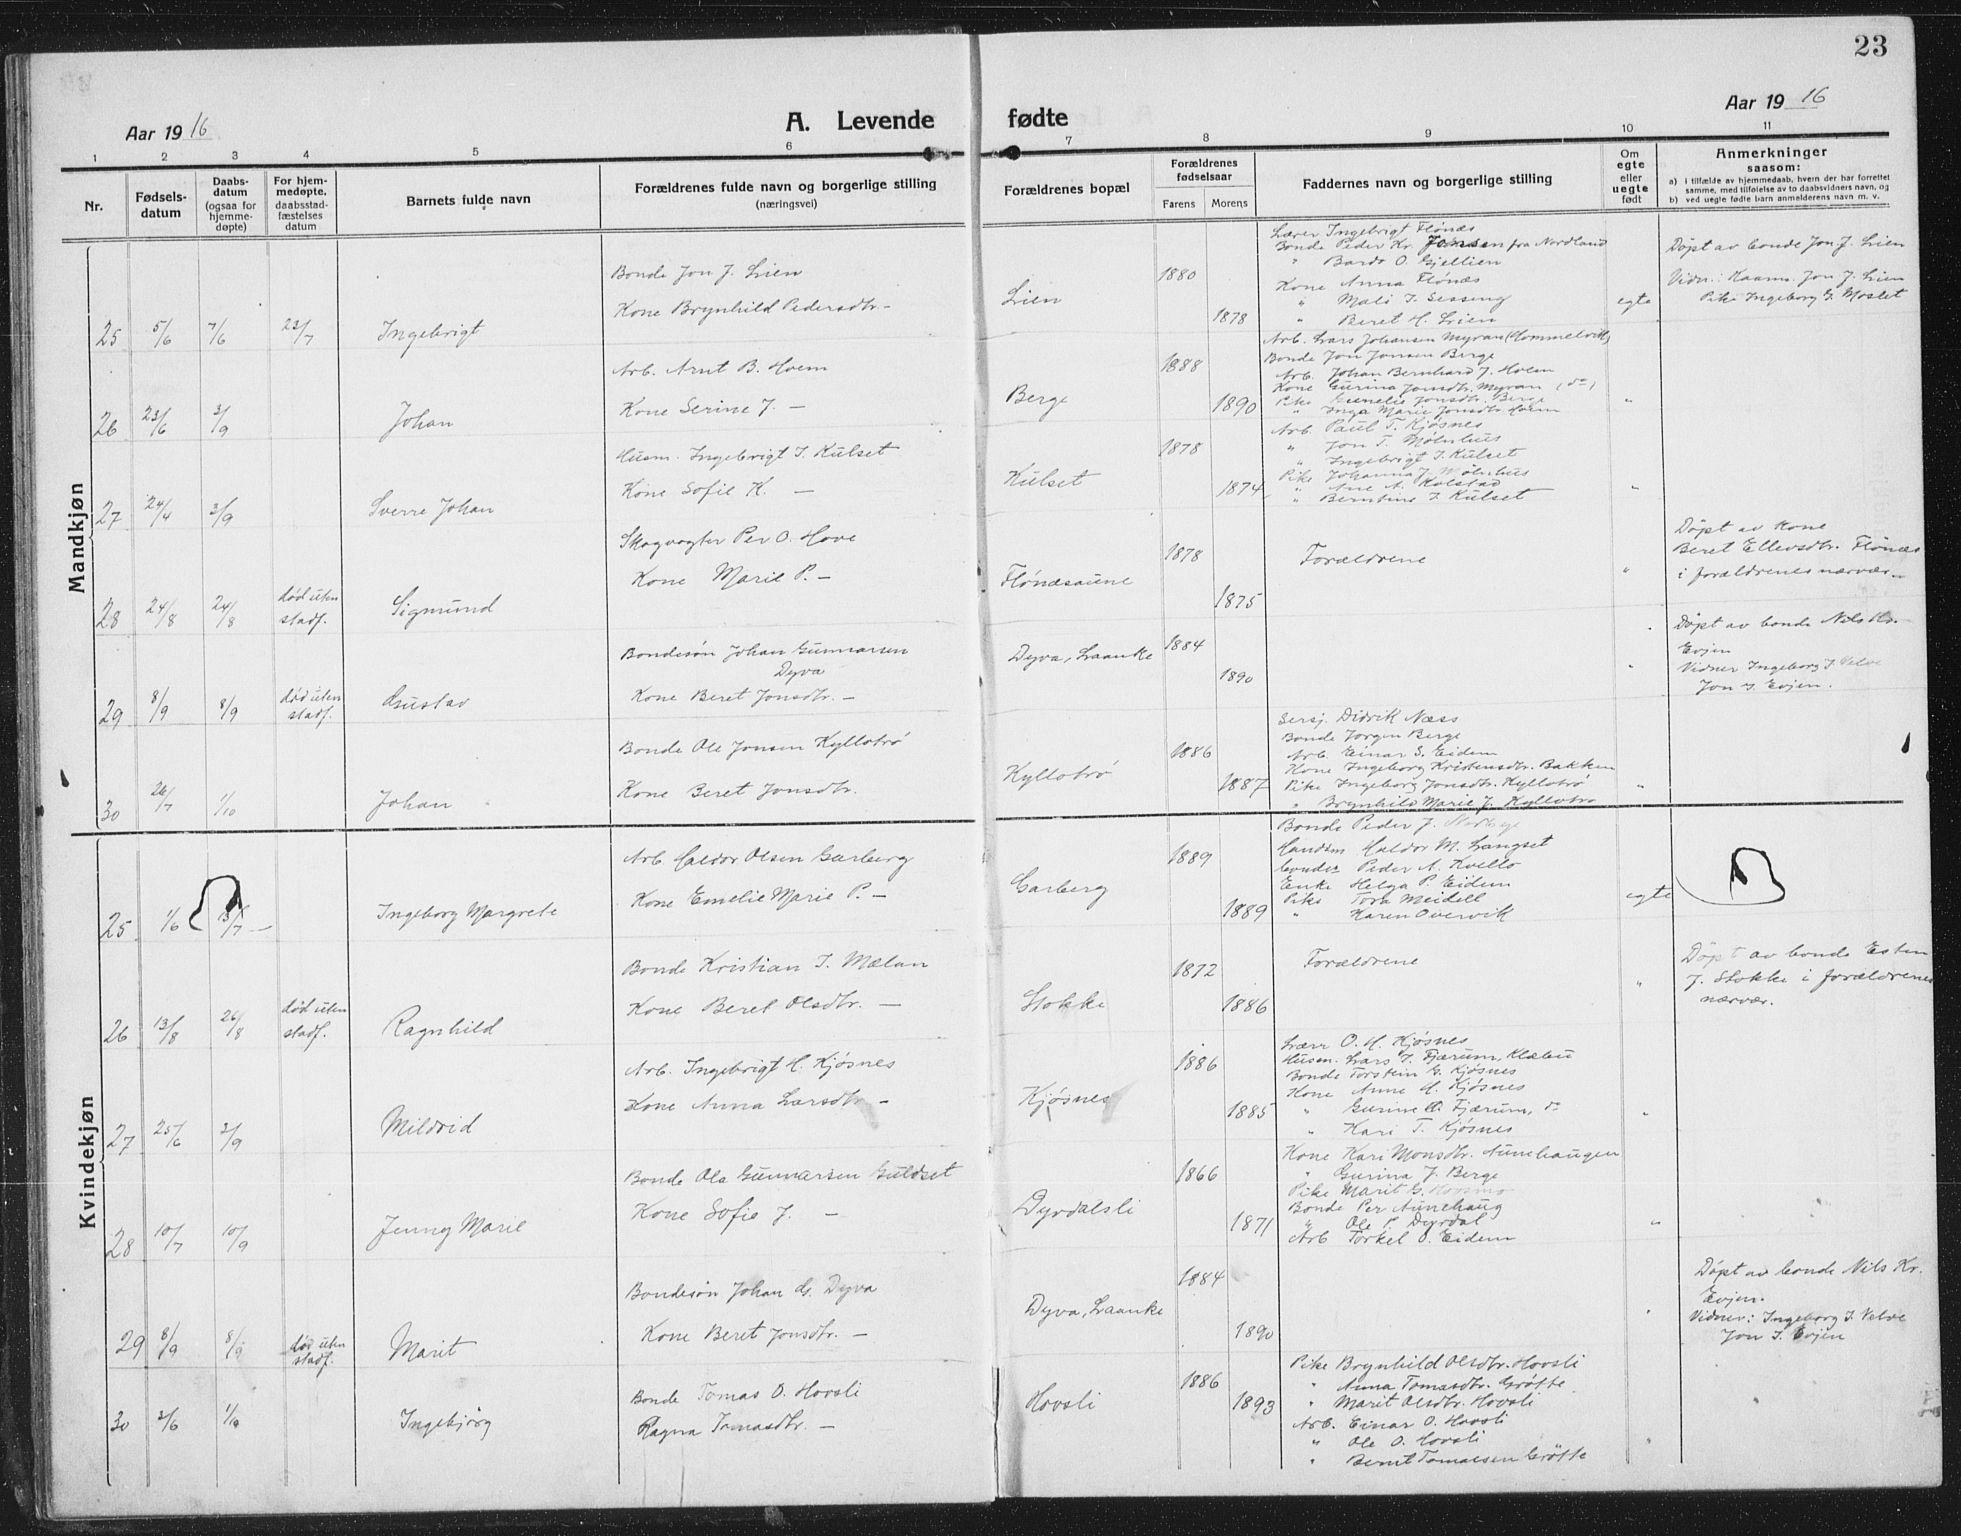 23
Aar 1916
A. Levende fødte
Aar 1916
1 2 3 4 5 6 7 8 9 10 11
Nr.
Fødsels-
datum
Daabs-
datum
(ogsaa for
hjemme-
døpte)
For hjem-
medøpte,
daabsstad-
fæstelses
datum
Barnets fulde navn
Forældrenes fulde navn og borgerlige stilling
(næringsvei)
Forældrenes bopæl
Forældrenes
fødselsaar
Farens Morens
Faddernes navn og borgerlige stilling
Om
egte
eller
uegte
født
Anmerkninger
saasom:
a) i tilfælde av hjemmedaab, hvem der har forrettet
samme, med tilføielse av to daabsvidners navn, og
b) ved uegte fødte barn anmelderens navn m. v.
Mandkjøn
25 5/6 7/6 23/7 Ingebrigt
Bonde Jon J. Lien
Kone Brynhild Pedersdtr. -
Lien
1880
1878
Lærer Ingebrigt Flönæs
Bonde Peder Kr. Jensen fra Nordland
" Bardo O. Gjellien
Kone Anna Flönæs
" Mali J. Sessing
" Beret H. Lien
egte
Döpt av bonde Jon J. Lien
Vidn.: Kaarm. Jon J. Lien
Pike Ingeborg G. Moslet
26 23/6 3/9 Johan
Arb. Arnt B. Hoem
Kone Serine J. -
Berge
1888
1890
Arb. Lars Johansen Myran (Hommelvik)
Bonde Jon Jonsen Berge
Arb. Johan Bernhard J. Hoem
Kone Gurina Jonsdtr. Myran (do)
Pike Gunelie Jonsdtr. Berge
" Inga Marie Jonsdtr. Hoem
"
27 24/4 3/9 Sverre Johan
Husm. Ingebrigt J. Kulset
Kone Sofie K. -
Kulset
1878
1874
Arb. Paul T. Kjøsnes
" Jon T. Mølnhus
" Ingebrigt J. Kulset
Pike Johanna J. Mølnhus
" Ane A. Kolstad
" Berntine J. Kulset
"
28 24/8 24/8 död uten
stadf.
Sigmund
Skogvogter Per O. Hove
Kone Marie P. -
Flönæsaune
1878
1875
Forældrene
"
Döpt av kone
Beret Ellevsdtr. Flönæs
i forældrenes nærvær.
29 8/9 8/9 död uten
stadf.
Gustav
Bondesön Johan Gunnarsen
Dyva
Kone Beret Jonsdtr. -
Dyva, Laanke
1884
1890
"
Döpt av bonde Nils Kr.
Evjen
Vidner Ingeborg J. Velve
Jon J. Evjen.
30 26/7 1/10 Johan
Bonde Ole Jonsen Kyllotrö
Kone Beret Jonsdtr.
Kyllotrö
1886
1887
Sersj. Didrik Næss
Bonde Jørgen Berge
Arb. Einar S. Eidem
Kone Ingeborg Kristensdtr. Bakken
Pike Ingeborg Jonsdtr. Kyllotrö
" Brynhild Marie J. Kyllotrö
"
Kvindekjøn
25 1/6 /7 Ingeborg Margrete
Arb. Haldor Olsen Garberg
Kone Emelie Marie P. -
Garberg
1889
1889
Bonde Peder J.
Handsm. Haldor M. Langset
Peder A. Kvello
Enke Helga P. Eidem
Pike Tora Meidell
" Karen Overvik
egte
26 13/8 26/8 död uten
stadf.
Ragnhild
Bonde Kristian J. Mælan
Kone Beret Olsdtr. -
Stokke
1872
1886
Forældrene
"
Döpt av bonde Esten
J. Stokke i forældrenes
nærvær.
27 25/6 3/9 Mildrid
Arb. Ingebrigt H. Kjøsnes
Kone Anna Larsdtr. -
Kjøsnes
1886
1885
Lærer O. H. Kjøsnes
Husm. Lars J. Fjærum, Klæbu
Bonde Torstein G. Kjøsnes
Kone Anne H. Kjøsnes
" Gurine O. Fjærum, do
" Kari T. Kjøsnes
"
28 10/7 10/9 Jenny Marie
Bonde Ola Gunnarsen Guldset
Kone Sofie J. -
Dyrdalsli
1866
1871
Kone Kari Monsdtr. Aunehaugen
" Gurina J. Berge
Pike Marit G. Hoosmo
Bonde Per Aunehaug
" Ole P. Dyrdal
Arb Torkel O. Eidem
"
29 8/9 8/9 död uten
stadf.
Marit
Bondesön Johan G. Dyva
Kone Beret Jonsdtr. -
Dyva, Laanke
1884
1890
"
Döpt av bonde Nils Kr.
Evjen.
Vidner: Ingeborg J. Velve
Jon J. Evjen
30 3/6 1/10 Ingebjørg
Bonde Tomas O. Hovsli
Ragna Tomasdtr. -
Hovsli
1886
1893
Pike Brynhild Olsdtr. Hovsli
" Anna Tomasdtr. Grötte
" Marit Olsdtr. Hovsli
Arb. Einar O. Hovsli
" Ole O. Hovsli
" Bernt Tomassen Grötte